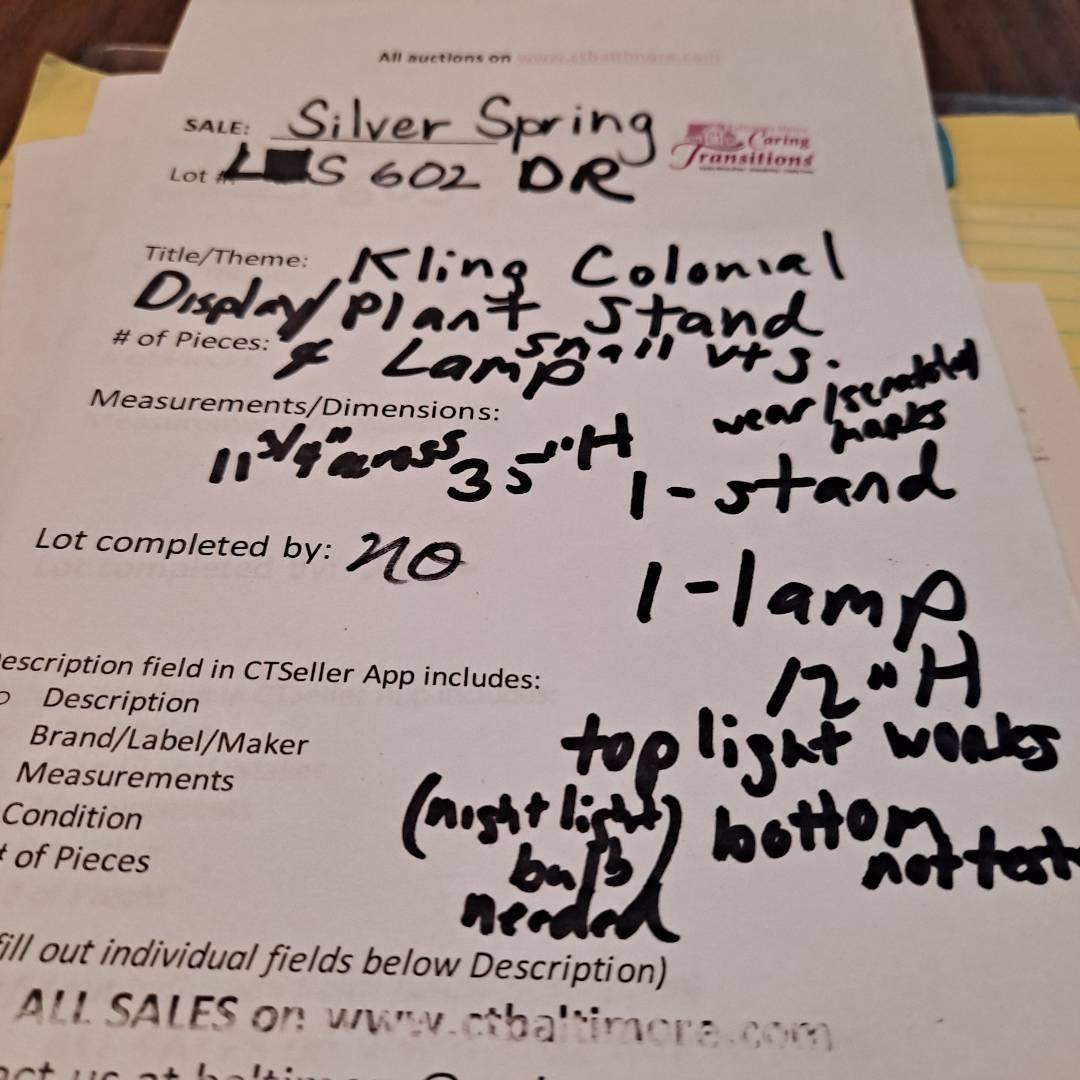 All auctions on www.ctbaltimore.com
SALE: Silver Spring
Caring
Transitions
Lot # S 602 DR
Title/Theme: Kling Colonial
Display/Plant Stand
# of Pieces: & Lamp small
Measurements/Dimensions: wear/
marks
11 3/4" across 35" H
1 - stand
Lot completed by: no
1 - lamp
12" H
escription field in CTSeller App includes:
Description
top light works
Brand/Label/Maker
Measurements
(night light) bottom
Condition
not test
bulb
# of Pieces
needed
fill out individual fields below Description)
ALL SALES on www.ctbaltimore.com
act us at